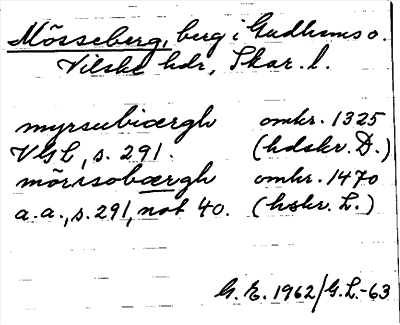 Mösseberg, berg i Gudhems o.
Vilske hdr, Skar. l.
myrsubiærgh omkr. 1325
VGL, s. 291. (hdskr. D.)
mörisobærgh omkr. 1470
a.a., s. 291, not 40. (hskr. L.)
G. E. 1962/G.L.-63